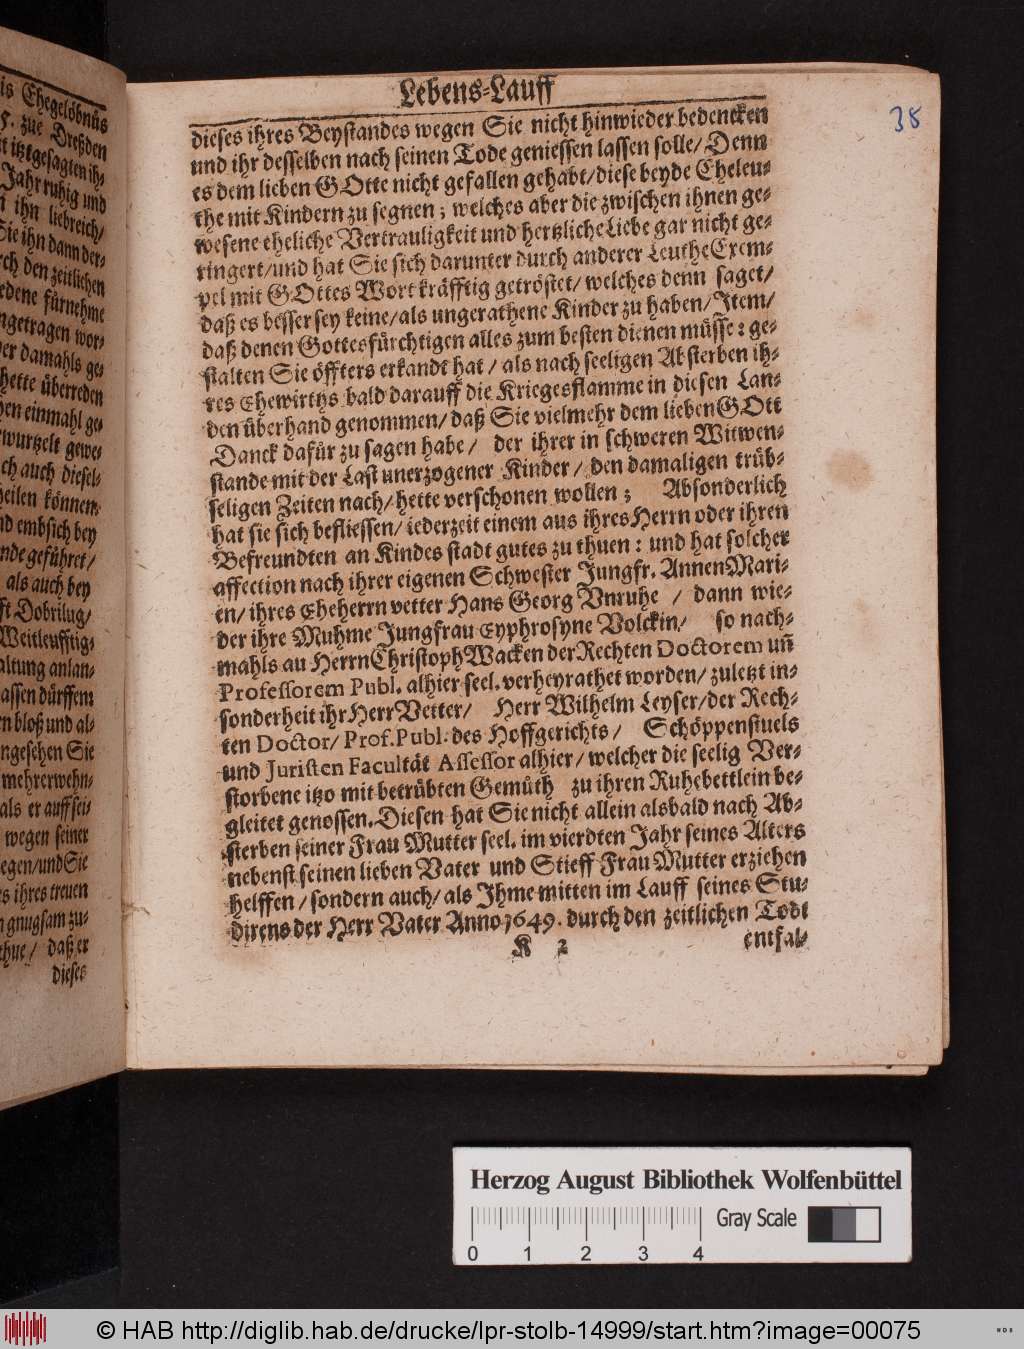 is Ehegelöbnüs
5. zue Dreßden
it itztgesagten ih-
Jahr ruhig und
n ihn liebreich/
Sie ihn dann der-
rch den zeitlichen
edene fürnehme
ngetragen wor-
er damahls ge-
hette überreden
hen einmahl ge-
wurtzelt gewe-
ch auch diesel-
heilen können.
nd embsich bey
nde geführet/
als auch bey
fft Dobrilug/
Weitleufftig-
altung anlan-
assen dürffen:
n bloß und al-
ngesehen Sie
mehrerwehn-
als er auff sei-
wegen seiner
egen/und Sie
es ihres treuen
n gnugsam zu-
thue/ daß er
dieses
Lebens-Lauff
38
dieses ihres Beystandes wegen Sie nicht hinwieder bedencken
und ihr desselben nach seinen Tode geniessen lassen solle/ Denn
es dem lieben GOtte nicht gefallen gehabt/diese beyde Eheleu-
the mit Kindern zu segnen; welches aber die zwischen ihnen ge-
wesene eheliche Vertrauligkeit und hertzliche Liebe gar nicht ge-
ringert/und hat Sie sich darunter durch anderer Leuthe Exem-
pel mit GOttes Wort kräfftig getröstet/ welches denn saget/
daß es besser sey keine/als ungerathene Kinder zu haben/Item/
daß denen Gottesfürchtigen alles zum besten dienen müsse: ge-
stalten Sie öffters erkandt hat/ als nach seeligen Absterben ih-
res Ehewirths bald darauff die Kriegesflamme in diesen Lan-
den überhand genommen/ daß Sie vielmehr dem lieben GOtt
Danck dafür zu sagen habe/ der ihrer in schweren Witwen-
stande mit der Last unerzogener Kinder/ den damaligen trüb-
seligen Zeiten nach/ hette verschonen wollen; Absonderlich
hat sie sich befliessen/ iederzeit einem aus ihres Herrn oder ihren
Befreundten an Kindes stadt gutes zu thuen: und hat solcher
affection nach ihrer eigenen Schwester Jungfr. Annen Mari-
en/ ihres Eheherrn vetter Hans Georg Vnruhe / dann wie-
der ihre Muhme Jungfrau Eyphrosyne Volckin/ so nach-
mahls an Herrn Christoph Wacken der Rechten Doctorem uñ
Professorem Publ. alhier seel. verheyrathet worden/ zuletzt in-
sonderheit ihr Herr Vetter/ Herr Wilhelm Leyser/ der Rech-
ten Doctor/ Prof. Publ. des Hoffgerichts/ Schöppenstuels
und Juristen Facultät Assessor alhier/ welcher die seelig Ver-
storbene itzo mit betrübten Gemüth zu ihren Ruhebettlein be-
gleitet genossen. Diesen hat Sie nicht allein alsbald nach Ab-
sterben seiner Frau Mutter seel. im vierdten Jahr seines Alters
nebenst seinen lieben Vater und Stieff Frau Mutter erziehen
helffen/ sondern auch/ als Jhme mitten im Lauff seines Stu-
direns der Herr Vater Anno 1649. durch den zeitlichen Todt
K 2 entfal-
Herzog August Bibliothek Wolfenbüttel
Gray Scale
0 1 2 3 4
© HAB http://diglib.hab.de/drucke/lpr-stolb-14999/start.htm?image=00075